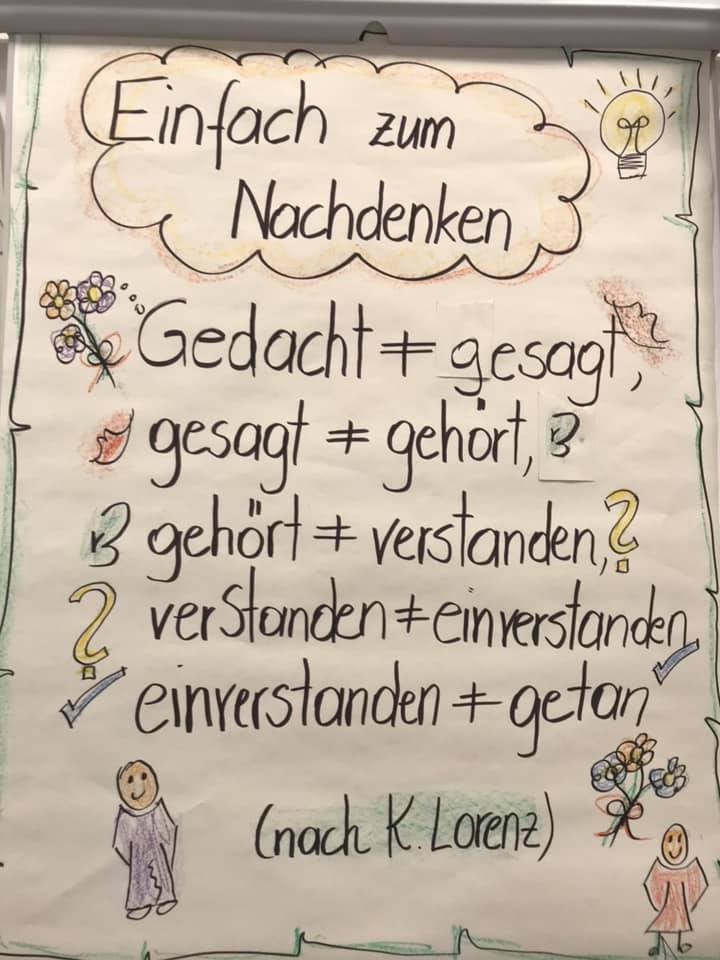 Einfach zum
Nachdenken
Gedacht ≠ gesagt,
gesagt ≠ gehört,
gehört ≠ verstanden,
verstanden ≠ einverstanden
einverstanden ≠ getan
(nach K. Lorenz)